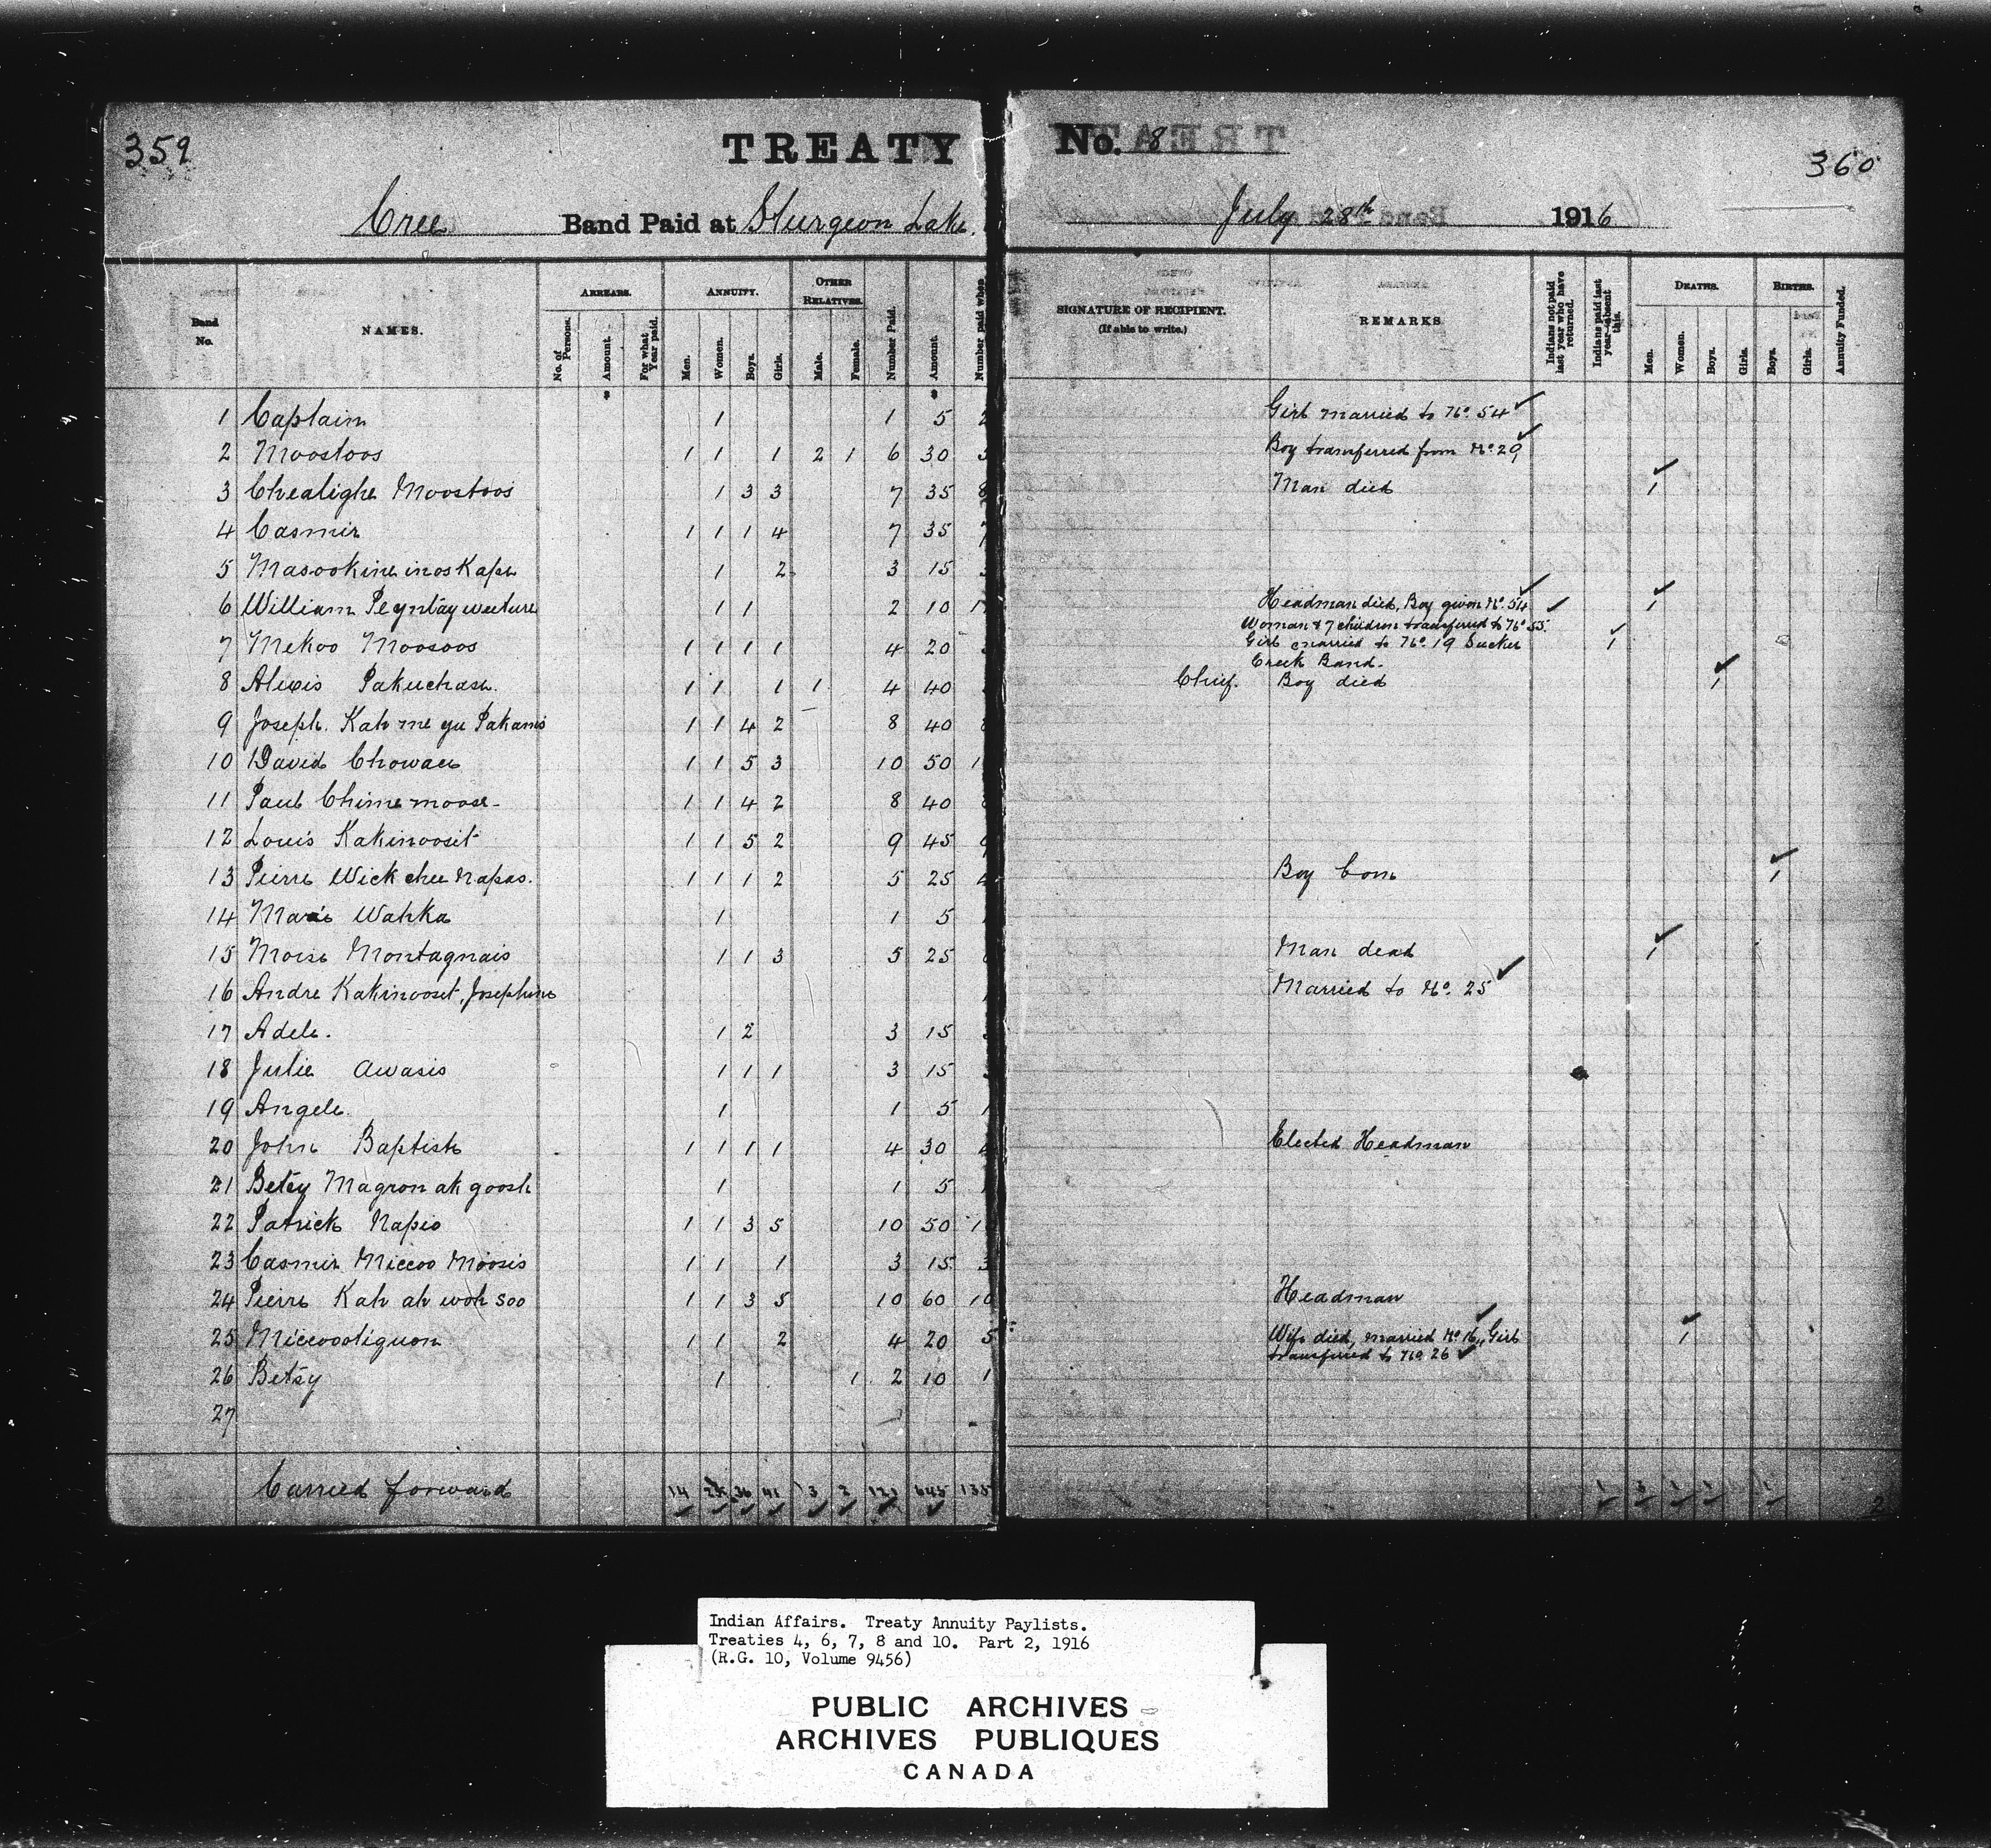 359
TREATY No. 8
360
Cree Band Paid at Sturgeon Lake. July 28th 1916
Band No.
NAMES.
ARREARS.
No. of Persons.
Amount.
For what Year paid.
ANNUITY.
Men.
Women.
Boys.
Girls.
OTHER RELATIVES.
Male.
Female.
Number Paid.
Amount.
Number paid when
SIGNATURE OF RECIPIENT.
(If able to write.)
REMARKS
Indians not paid last year who have returned.
Indians paid last year—absent this.
DEATHS.
Men.
Women.
Boys.
Girls.
BIRTHS.
Boys.
Girls.
Annuity Funded.
$ $
1 Captain 1 1 5 2 Girl married to No. 54 ✓
2 Moostoos 1 1 1 2 1 6 30 Boy transferred from No. 29 ✓
3 Chealighe Moostoos 1 3 3 7 35 8 Man died 1 ✓
4 Casmir 1 1 1 4 7 35 7
5 Masookine inos Kape 1 2 3 15
6 William Peyntayweeture 1 1 2 10 1 Headman died, Boy given No. 54 ✓ 1 ✓
Woman & 7 children transferred to No. 55.
7 Mekoo Moosoos 1 1 1 1 4 20 Girl married to No. 19 Sucker 1 ✓
Creek Band.
8 Alexis Pakuchase. 1 1 1 1 4 40 Chief. Boy died 1 ✓
9 Joseph. Kah me ye Pakamis 1 1 4 2 8 40
10 David Chowace 1 1 5 3 10 50 1
11 Paul Chime moose 1 1 4 2 8 40
12 Louis Kakinoosit 1 1 5 2 9 45
13 Pierre Wick chee Napas. 1 1 1 2 5 25 4 Boy born 1 ✓
14 Marie Wahka 1 1 5
15 Moise Montagnais 1 1 3 5 25 Man dead 1 ✓
16 Andre Kakinooset, Josephine Married to No. 25 ✓
17 Adele. 1 2 3 15
18 Julie Awasis 1 1 1 3 15
19 Angele. 1 1 5 1
20 John Baptiste 1 1 1 1 4 30 4 Elected Headman
21 Betsy Magron ak goosh 1 1 5
22 Patrick Napio 1 1 3 5 10 50 1
23 Casmir Miccoo Moosis 1 1 1 3 15 3
24 Pierre Kah ah woh soo 1 1 3 5 10 60 10 Headman
25 Miccoootiguon 1 1 2 4 20 5 Wife died, married No. 16, Girl 1 ✓
transferred to No 26 ✓
26 Betsy 1 1 2 10 1
27
Carried forward 14 36 41 3 2 121 645 135 1 3 1 1 1
2
Indian Affairs. Treaty Annuity Paylists.
Treaties 4, 6, 7, 8 and 10. Part 2, 1916
(R.G. 10, Volume 9456)
PUBLIC ARCHIVES
ARCHIVES PUBLIQUES
CANADA